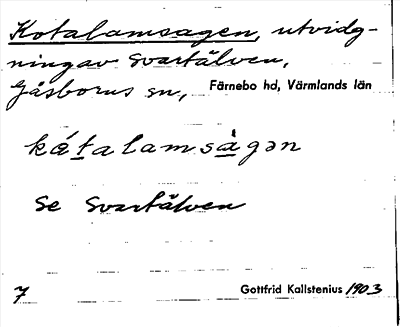 Kotalamsagen, utvidg-
ning av Svartälven,
Gåsborns sn, Färnebo hd, Värmlands län
kátalamsàgən
Se Svartälven
7 Gottfrid Kallstenius 1903